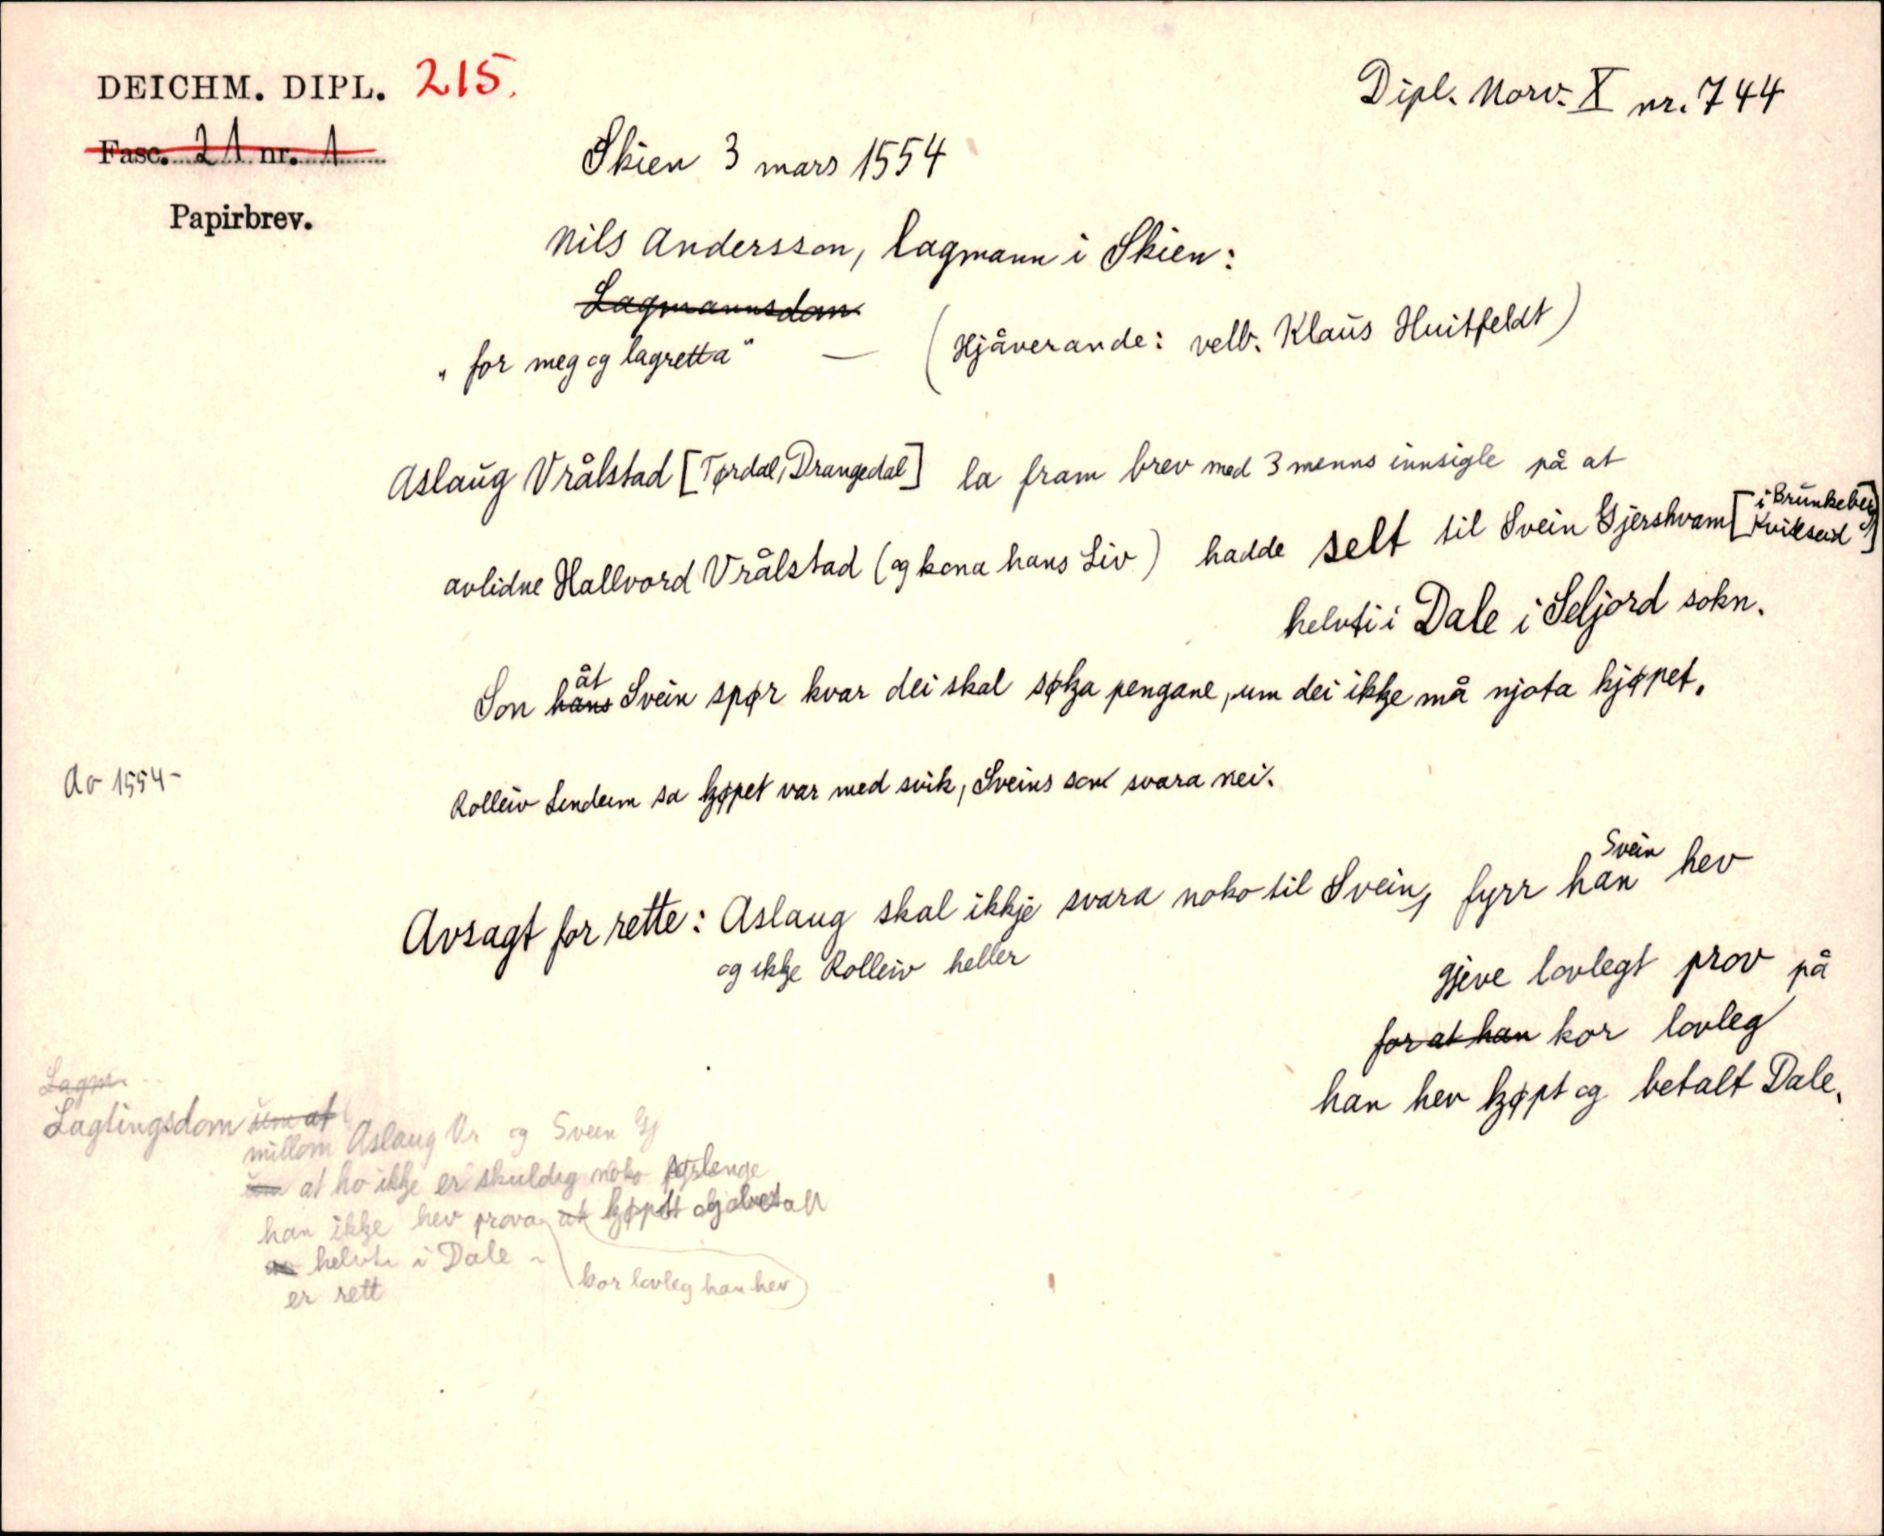 DEICHM. DIPL. 215.
Dipl. Norv. X nr. 744
Fasc. 21 nr. 1
Papirbrev.
Skien 3 mars 1554
Nils Andersson, lagmann i Skien:
Lagmannsdom
"for meg og lagretta" — (Hjåverande: velb. Klaus Huitfeldt)
Aslaug Vrålstad [Tørdal, Drangedal] la fram brev med 3 menns innsigle på at
avlidne Hallvord Vrålstad (og kona hans Liv) hadde selt til Svein Gjershvam [i Brunkeberg, Kviteseid]
helvti i Dale i Seljord sokn.
Son hans åt Svein spør kvar dei skal søkja pengane, um dei ikkje må njota kjøpet.
Av 1554-
Rolleiv Lindum sa kjøpet var med svik, Sveins son svara nei.
Avsagt for rette: Aslaug skal ikkje svara noko til Svein, fyrr han Svein hev
og ikkje Rolleiv heller
gjeve lovlegt prov på
for at han kor lovleg
han hev kjøpt og betalt Dale.
Lagm.
Lagtingsdom um at
millom Aslaug Vr og Svein Gj
um at ho ikkje er skuldig noko so lenge
han ikkje hev prova at kjøpet og betalt
helvti i Dale -
kor lovleg han hev
er rett